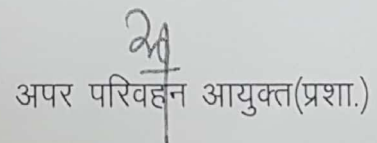 अपर परिवहन आयुक्त(प्रशा.)